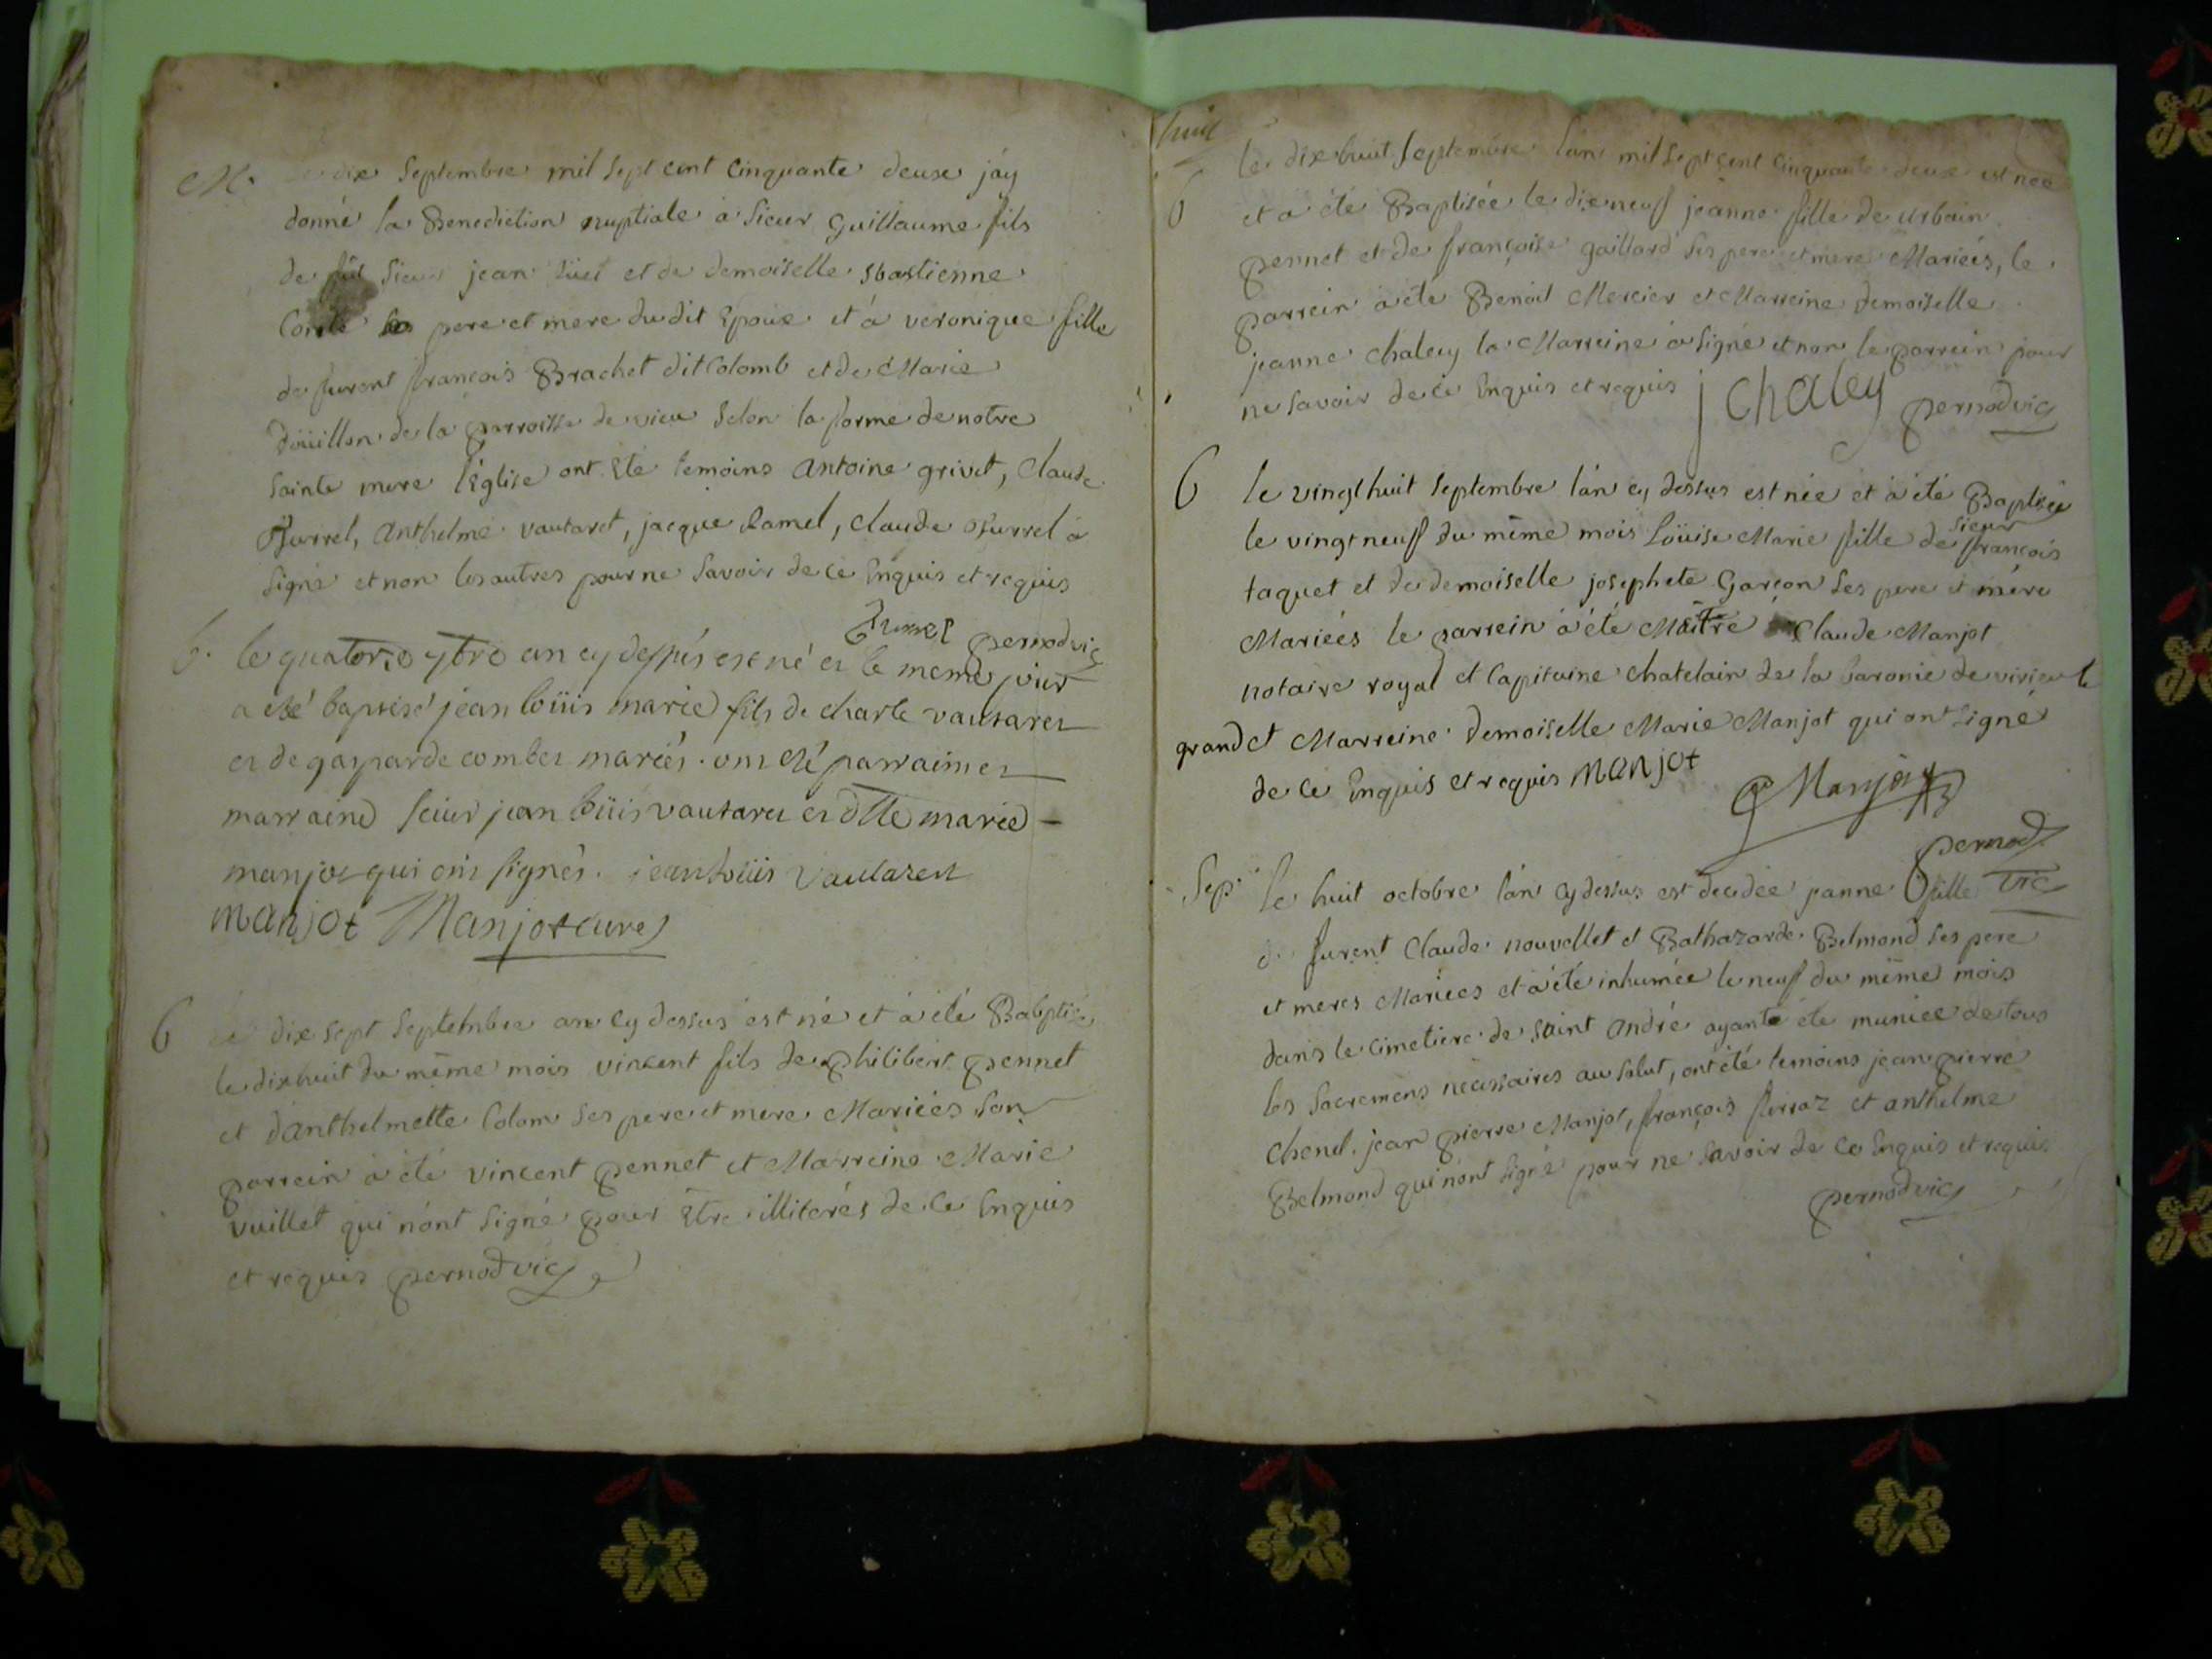 M. dix Septembre mil Sept cent Cinquante deuse jáy
donné la Benediction nuptiale a Sieur Guillaume fils
de Sieur jean et de demoiselle sbastienne
pere et mere du dit Epoux et á veronique fille
de furent françois Brachet dit Colomb et de Marie
douillon de la parroisse de vieu Selon la forme de notre
Sainte mere l'Eglise ont Eté temoins antoine grivet, Claude
anthelme vautaret, jacque Camel, Claude à
Signé et non les autres pour ne Savoir de ce Enquis et requis
pernod vic
b. le quatorze 7bre an cy dessus est né et le meme jour
a esté baptisé jean loüis marie fils de charle vautaret
et de gasparde combet mariés. ont été parrain et
marraine sieur jean loüis vautaret et dlle marie
manjot qui ont signés. jean loüis vautaret
manjot Manjot curé
6 dix sept Septembre an cy dessus est né et à été Babptisé
le dixhuit du même mois vincent fils de philibert pennet
et dánthelmette Colom Ses pere et mere Mariées Son
parrein à été vincent pennet et Marreine Marie
vuillet qui n'ont Signé pour Etre illiterés de ce Enquis
et requis pernod vic
huit
6 le dix huit Septembre l'an mil Sept cent Cinquante deux est née
et a été Baptisée le dixneuf jeanne fille de urbain
pennet et de françoise gaillard Ses pere et mere Mariées, le
parrein à été Benoit Mercier et Marreine demoiselle
jeanne chaley la Marreine à Signé et non le parrein pour
ne Savoir de ce Enquis et requis j chaley pernod vic
6 le vingt huit Septembre l'an cy dessus est née et à été Baptisée
le vingt neuf du même mois Loüise Marie fille de sieur françois
taquet et de demoiselle josephete Garçon Ses pere et mére
Mariées le parrein à été Maître Claude Manjot
notaire royal et Capitaine chatelain de la baronie de virieu le
grand et Marreine demoiselle Marie Manjot qui ont Signé
de ce Enquis et requis manjot Manjot
pernod vic
Sep. le huit octobre l'an cy dessus est decedée jeanne fille
de furent Claude nouvellet et Balthazarde Belmond Ses pere
et meres Mariées et à été inhumée le neuf du même mois
dans le Cimetiere de Saint andré ayante été muniee de tous
les Sacremens necessaires au Salut, ont été temoins jean pierre
Chenel. jean pierre Manjot, françois ferraz et anthelme
Belmond qui n'ont Signé pour ne Savoir de ce Enquis et requis
pernod vic